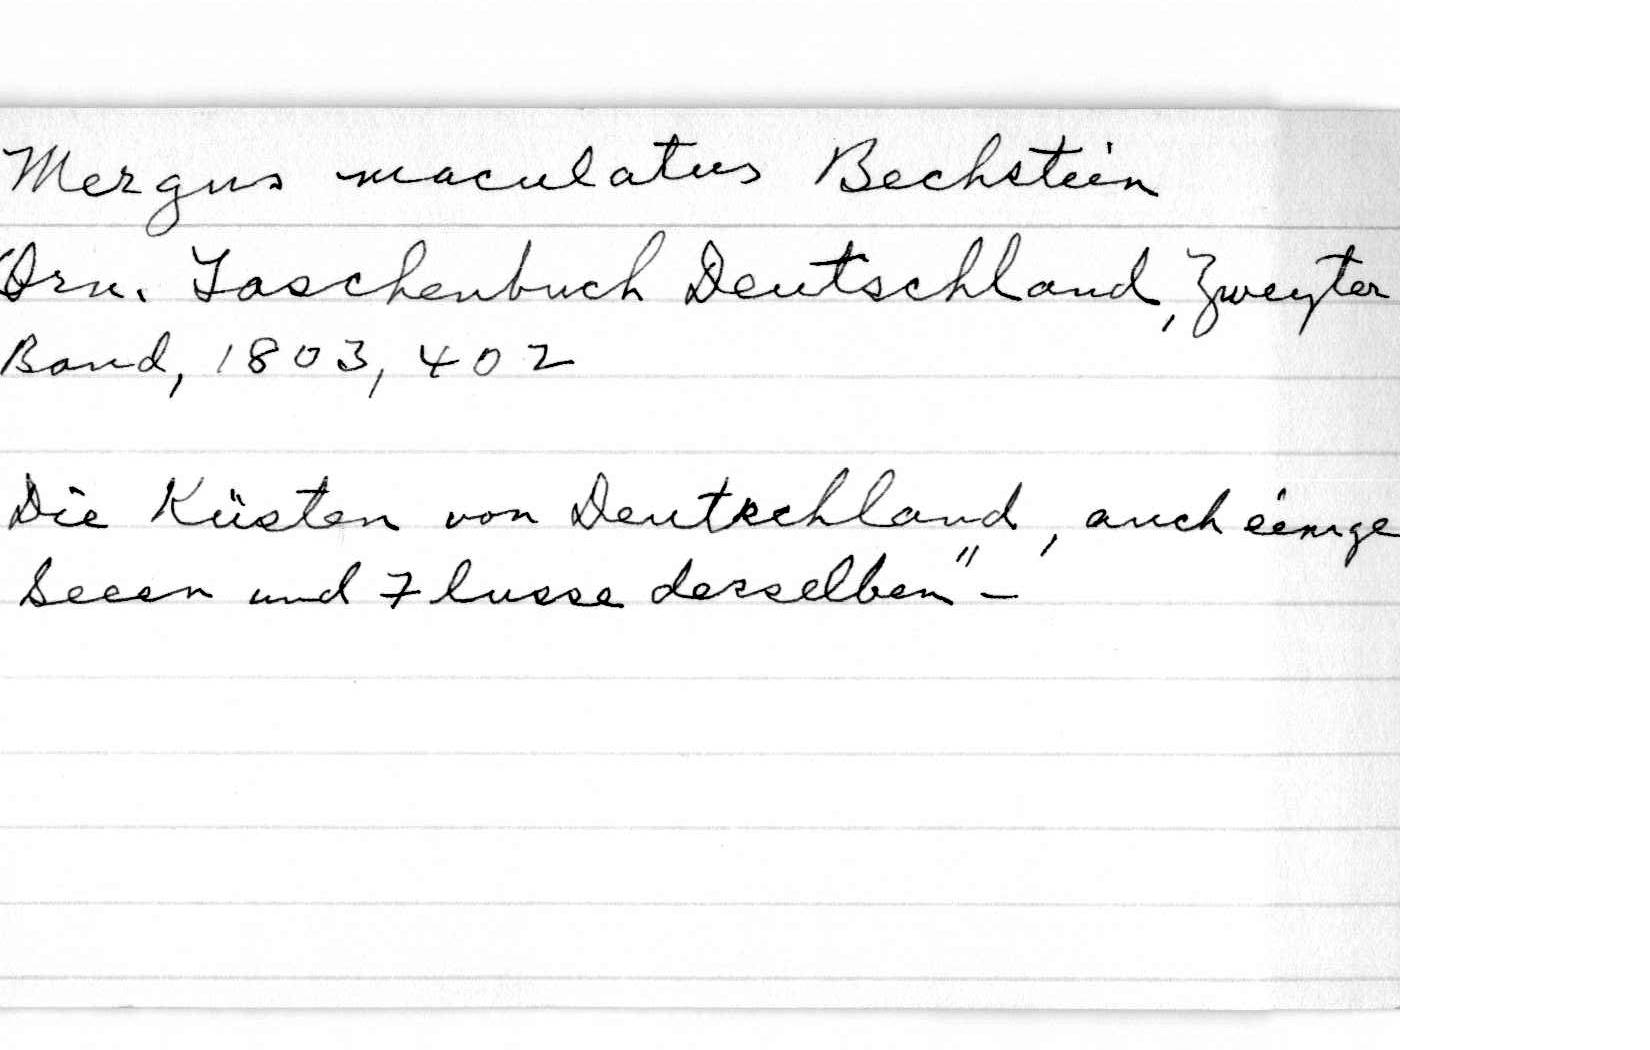 Mergus maculatus Bechstein
Orn. Taschenbuch Deutschland, Zweyter
Band, 1803, 402
Die Küsten von Deutschland, auch einige
Seeen und Flusse desselben" –